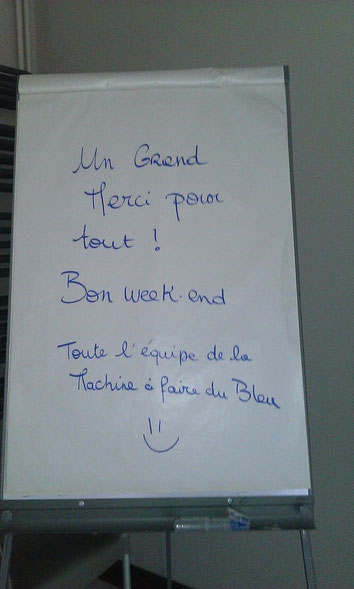 Un Grand
Merci pour
tout !
Bon week-end
Toute l'équipe de la
Machine à faire du Bleu